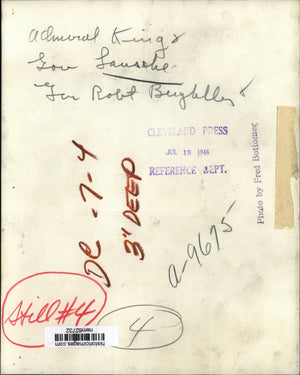 Admiral King &
Gov Lausche.
For Robt
CLEVELAND PRESS
JUL 19 1946
REFERENCE DEPT.
Photo by Fred Bottomer
DC-7-4
3" DEEP
a-9675
Still #4
4
historicimages.com
nem62732